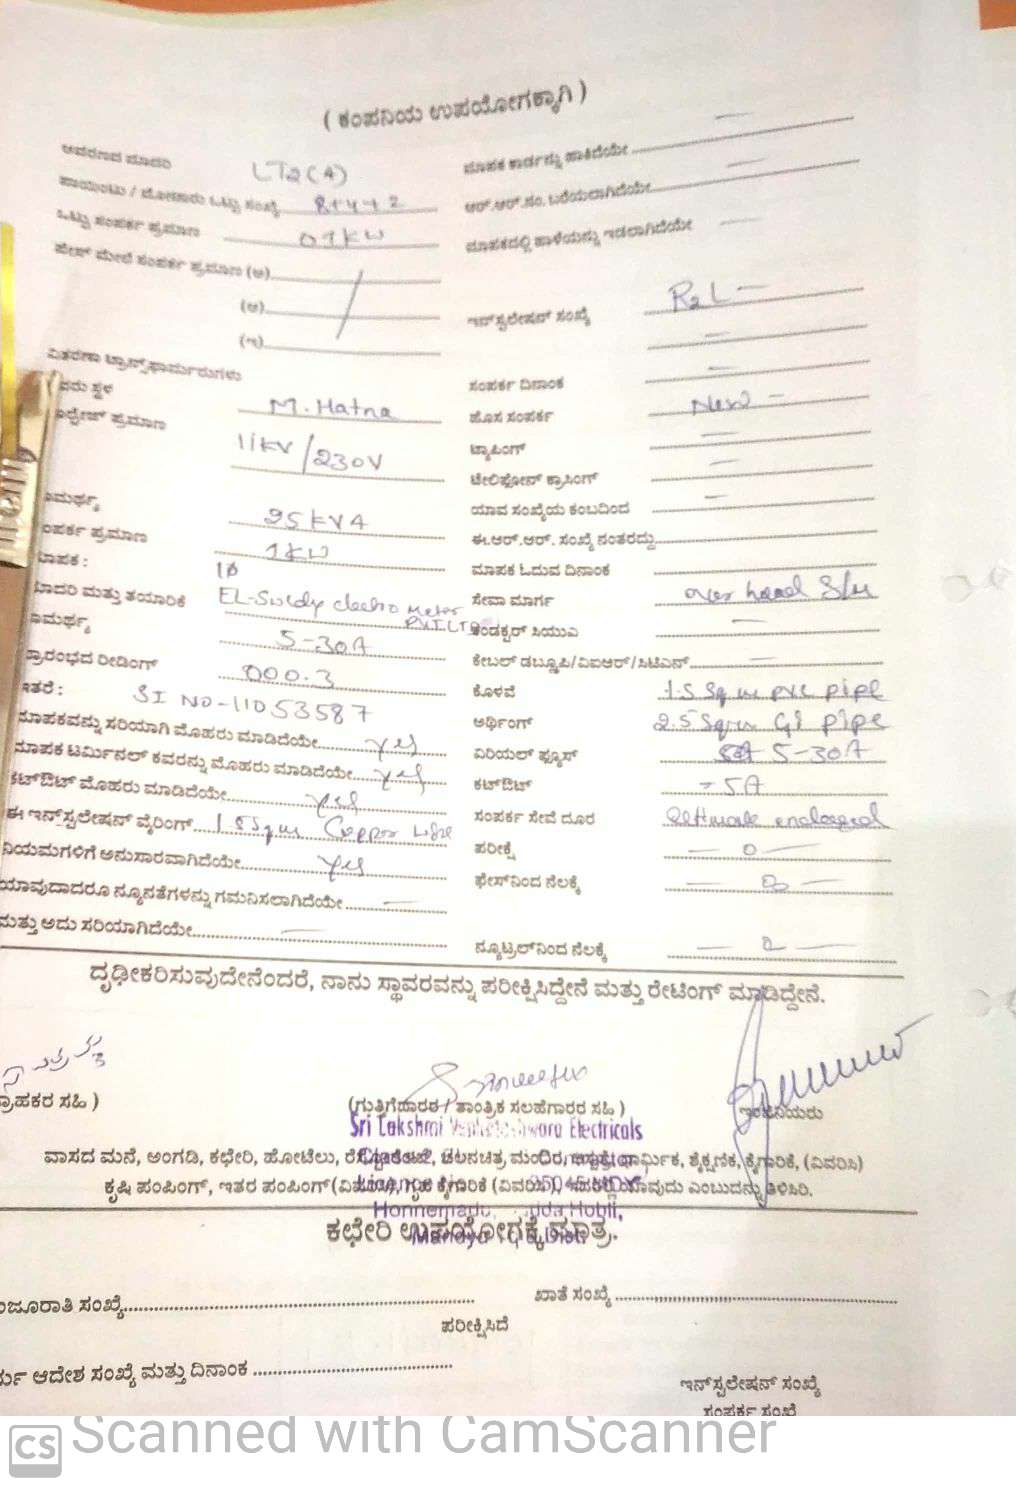 ( ಕಂಪನಿಯ ಉಪಯೋಗಕ್ಕಾಗಿ )
ಆವರಣದ ಮಾದರಿ LT2(A)
ಮಾಪಕ ಕಾರ್ಡನ್ನು ಹಾಕಿದೆಯೇ —
ಪಾಯಿಂಟು / ಮೋಟಾರು ಒಟ್ಟು ಸಂಖ್ಯೆ
ಆರ್.ಆರ್.ನಂ. ಬರೆಯಲಾಗಿದೆಯೇ —
ಒಟ್ಟು ಸಂಪರ್ಕ ಪ್ರಮಾಣ 01KW
ಮಾಪಕದಲ್ಲಿ ಹಾಳೆಯನ್ನು ಇಡಲಾಗಿದೆಯೇ —
ಪೇಸ್ ಮೇಲೆ ಸಂಪರ್ಕ ಪ್ರಮಾಣ (ಅ)
(ಆ)
(ಇ)
ಇನ್‌ಸ್ಟಲೇಷನ್ ಸಂಖ್ಯೆ R2L —
ವಿತರಣಾ ಟ್ರಾನ್ಸ್‌ಫಾರ್ಮರುಗಳು
ಸಂಪರ್ಕ ದಿನಾಂಕ —
ವರು ಸ್ಥಳ M. Hatna
ಹೊಸ ಸಂಪರ್ಕ New —
ಪ್ರಮಾಣ 11KV/230V
ಟ್ಯಾಪಿಂಗ್ —
ಟೆಲಿಫೋನ್ ಕ್ರಾಸಿಂಗ್ —
ಯಾವ ಸಂಖ್ಯೆಯ ಕಂಬದಿಂದ —
ಾಮರ್ಥ್ಯ 25KVA
ಈ.ಆರ್.ಆರ್. ಸಂಖ್ಯೆ ನಂತರದ್ದು
ಂಪರ್ಕ ಪ್ರಮಾಣ 1KW
ಮಾಪಕ ಓದುವ ದಿನಾಂಕ
ಾಪಕ : 1Φ
ಾದರಿ ಮತ್ತು ತಯಾರಿಕೆ electro meter PVT LTD
ಸೇವಾ ಮಾರ್ಗ over head
ಾಮರ್ಥ್ಯ 5-30A
ಕಂಡಕ್ಟರ್ ಸಿಯುಎ —
್ರಾರಂಭದ ರೀಡಿಂಗ್ 000.3
ಕೇಬಲ್ ಡಬ್ಲೂಪಿ/ವಿಐಆರ್/ಸಿಟಿಎಸ್ —
ಇತರೆ : SI NO-11053587
ಕೊಳವೆ 1.5 Sqm PVC pipe
ಮಾಪಕವನ್ನು ಸರಿಯಾಗಿ ಮೊಹರು ಮಾಡಿದೆಯೇ yes
ಅರ್ಥಿಂಗ್ 2.5 Sqm GI pipe
ಮಾಪಕ ಟರ್ಮಿನಲ್ ಕವರನ್ನು ಮೊಹರು ಮಾಡಿದೆಯೇ yes
ಏರಿಯಲ್ ಫ್ಯೂಸ್ 5-30A
ಕಟ್‌ಔಟ್ ಮೊಹರು ಮಾಡಿದೆಯೇ yes
ಕಟ್‌ಔಟ್ - 5A
ಈ ಇನ್‌ಸ್ಟಲೇಷನ್ ವೈರಿಂಗ್ 1.5Sqm Copper wire
ಸಂಪರ್ಕ ಸೇವೆ ದೂರ estimate enclosed
ನಿಯಮಗಳಿಗೆ ಅನುಸಾರವಾಗಿದೆಯೇ yes
ಪರೀಕ್ಷೆ — 0 —
ಯಾವುದಾದರೂ ನ್ಯೂನತೆಗಳನ್ನು ಗಮನಿಸಲಾಗಿದೆಯೇ —
ಫೇಸ್‌ನಿಂದ ನೆಲಕ್ಕೆ
ಮತ್ತು ಅದು ಸರಿಯಾಗಿದೆಯೇ —
ನ್ಯೂಟ್ರಲ್‌ನಿಂದ ನೆಲಕ್ಕೆ
ದೃಢೀಕರಿಸುವುದೇನೆಂದರೆ, ನಾನು ಸ್ಥಾವರವನ್ನು ಪರೀಕ್ಷಿಸಿದ್ದೇನೆ ಮತ್ತು ರೇಟಿಂಗ್ ಮಾಡಿದ್ದೇನೆ.
್ರಾಹಕರ ಸಹಿ )
(ಗುತ್ತಿಗೆದಾರರ / ತಾಂತ್ರಿಕ ಸಲಹೆಗಾರರ ಸಹಿ )
ಇಂಜಿನಿಯರು
Sri Lakshmi Venkateshwara Electricals
ವಾಸದ ಮನೆ, ಅಂಗಡಿ, ಕಛೇರಿ, ಹೋಟೆಲು, ರೆಸ್ಟೋರೆಂಟ್, ಚಲನಚಿತ್ರ ಮಂದಿರ, ಆಸ್ಪತ್ರೆ, ಧಾರ್ಮಿಕ, ಶೈಕ್ಷಣಿಕ, ಕೈಗಾರಿಕೆ, (ವಿವರಿಸಿ)
ಕೃಷಿ ಪಂಪಿಂಗ್, ಇತರ ಪಂಪಿಂಗ್ (ವಿವರಿಸಿ), ಗೃಹ ಕೈಗಾರಿಕೆ (ವಿವರಿಸಿ), ಇವುಗಳಲ್ಲಿ ಯಾವುದು ಎಂಬುದನ್ನು ತಿಳಿಸಿರಿ.
Hobli,
ಕಛೇರಿ ಉಪಯೋಗಕ್ಕೆ ಮಾತ್ರ.
ಂಜೂರಾತಿ ಸಂಖ್ಯೆ
ಖಾತೆ ಸಂಖ್ಯೆ
ಪರೀಕ್ಷಿಸಿದೆ
ಆದೇಶ ಸಂಖ್ಯೆ ಮತ್ತು ದಿನಾಂಕ
ಇನ್‌ಸ್ಟಲೇಷನ್ ಸಂಖ್ಯೆ
ಸಂಪರ್ಕ ಸಂಖ್ಯೆ
CS Scanned with CamScanner